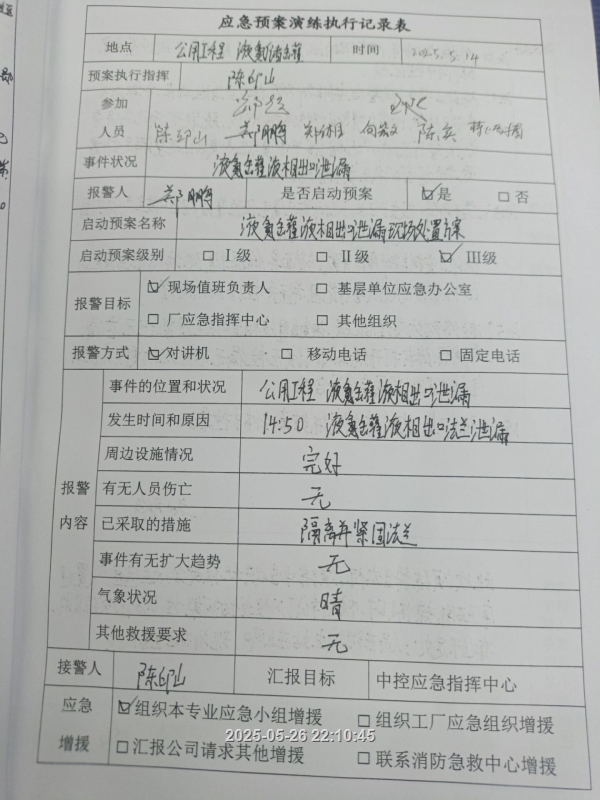 应急预案演练执行记录表
地点 公用工程 液氨储罐 时间 2025.5.14
预案执行指挥 陈印山
参加
人员 陈印山 郑鹏 陈兵
事件状况 液氨罐液相出口泄漏
报警人 郑鹏 是否启动预案 ☑是 □否
启动预案名称 液氨罐液相出口泄漏现场处置方案
启动预案级别 □Ⅰ级 □Ⅱ级 ☑Ⅲ级
报警目标 ☑现场值班负责人 □基层单位应急办公室
□厂应急指挥中心 □其他组织
报警方式 ☑对讲机 □移动电话 □固定电话
报警
内容
事件的位置和状况 公用工程 液氨罐液相出口泄漏
发生时间和原因 14:50 液氨罐液相出口法兰泄漏
周边设施情况 完好
有无人员伤亡 无
已采取的措施 隔离并紧固法兰
事件有无扩大趋势 无
气象状况 晴
其他救援要求 无
接警人 陈印山 汇报目标 中控应急指挥中心
应急
增援
☑组织本专业应急小组增援 □组织工厂应急组织增援
2025-05-26 22:10:45
□汇报公司请求其他增援 □联系消防急救中心增援